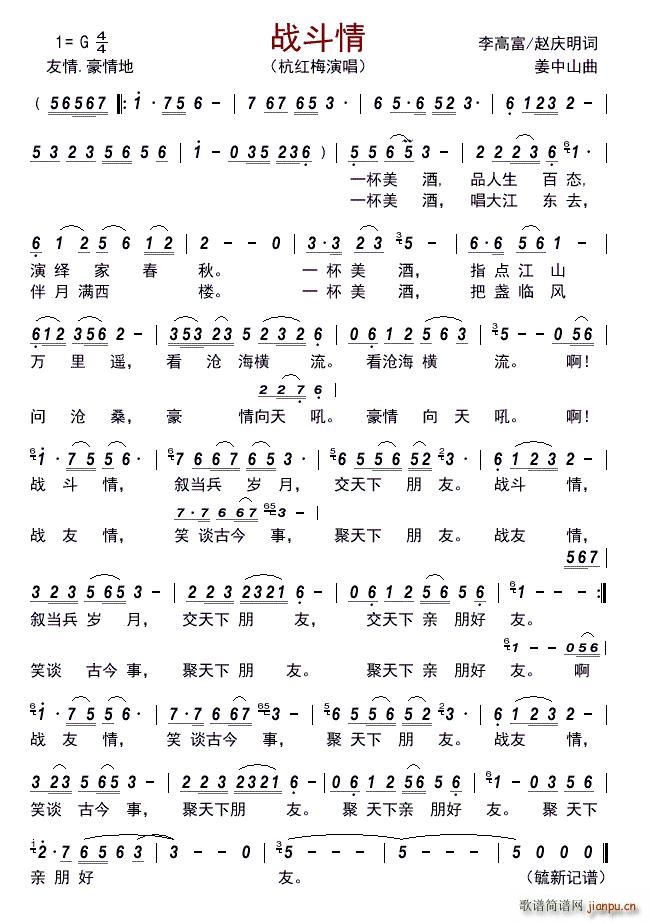 战斗情
1= G 4/4
李高富/赵庆明词
友情.豪情地
（杭红梅演唱）
姜中山曲
( 5 6 5 6 7 ‖: 1 · 7 5 6 - | 7 6 7 6 5 3 - | 6 5 · 6 5 2 3 · | 6 1 2 3 2 - |
5 3 2 3 5 6 5 6 | 1 - 0 3 5 2 3 6 ) | 5 5 6 5 3 - | 2 2 2 3 6 5 6 1 · |
一杯美 酒, 品人生 百 态,
一杯美 酒, 唱大江 东 去,
6 1 2 5 6 1 2 | 2 - 2 - | 3 · 3 2 3 3 5 - | 6 · 6 5 6 1 - |
演 绎 家 春 秋。 一 杯 美 酒, 指 点 江 山
伴 月 满 西 楼。 一 杯 美 酒, 把 盏 临 风
6 1 2 3 5 6 2 - | 3 5 3 2 3 5 2 3 2 6 | 0 6 1 2 5 6 3 | 3 5 - - 0 5 6 |
万 里 遥, 看 沧 海横 流。看沧海 横 流。 啊!
2 2 7 6 |
问 沧 桑, 豪 情向天 吼。豪情 向 天 吼。 啊!
6 1 · 7 5 5 6 · | 6 7 6 6 7 6 5 3 · | 5 6 5 5 5 6 5 2 2 3 · | 6 1 2 3 2 - |
战 斗 情, 叙当兵 岁 月, 交天下 朋 友。 战斗 情,
7 · 7 6 6 7 6 5 3 - |
战 友 情, 笑 谈古今 事, 聚天下 朋 友。 战友 情,
5 6 7
3 2 3 5 6 5 3 - | 2 2 3 2 3 2 1 6 · | 0 6 1 2 5 6 5 6 | 6 1 - - - :‖
叙当兵 岁 月, 交天下 朋 友, 交天下 亲 朋好 友。
6 1 - - 0 5 6 |
笑谈 古今 事, 聚天下 朋 友。 聚天下 亲 朋好 友。 啊
6 1 · 7 5 5 6 · | 7 · 7 6 6 7 6 5 3 - | 5 6 5 5 5 6 5 2 2 3 · | 6 1 2 3 2 - |
战 友 情, 笑 谈古今 事, 聚天下 朋 友。 战友 情,
3 2 3 5 6 5 3 - | 2 2 3 2 3 2 1 6 · | 0 6 1 2 5 6 5 6 | 6 1 - 0 1 2 |
笑谈 古今 事, 聚天下朋 友。 聚 天下亲 朋好 友。 聚 天下
i 2 · 7 6 5 6 3 | 3 - - 0 | 3 5 - - - | 5 - - - | 5 0 0 0 ‖
亲 朋 好 友。 （毓新记谱）
歌谱简谱网
jianpu.cn